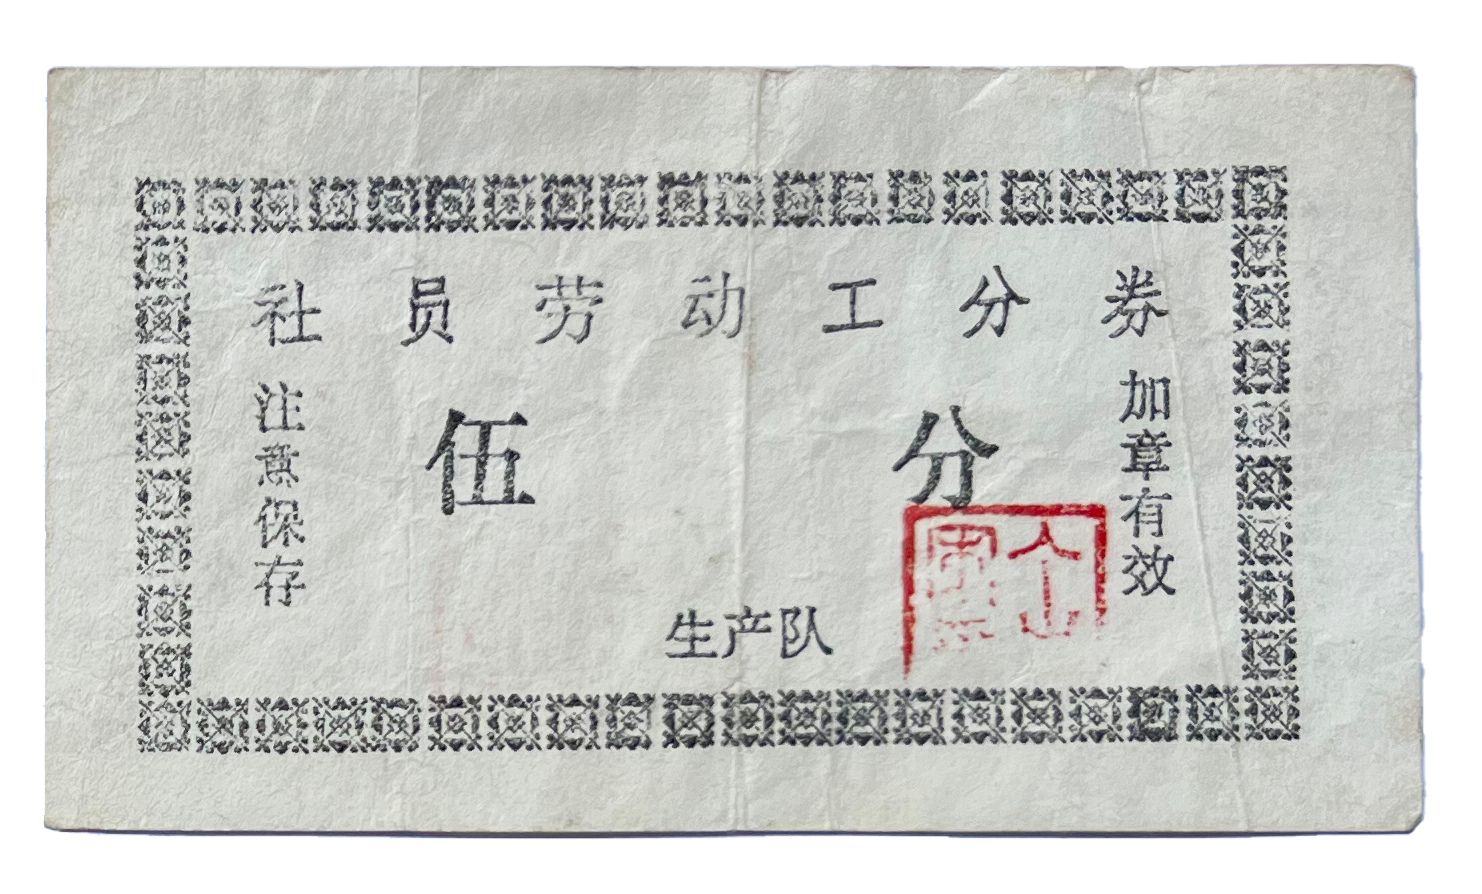 社员劳动工分券
注意保存
伍分
加章有效
生产队